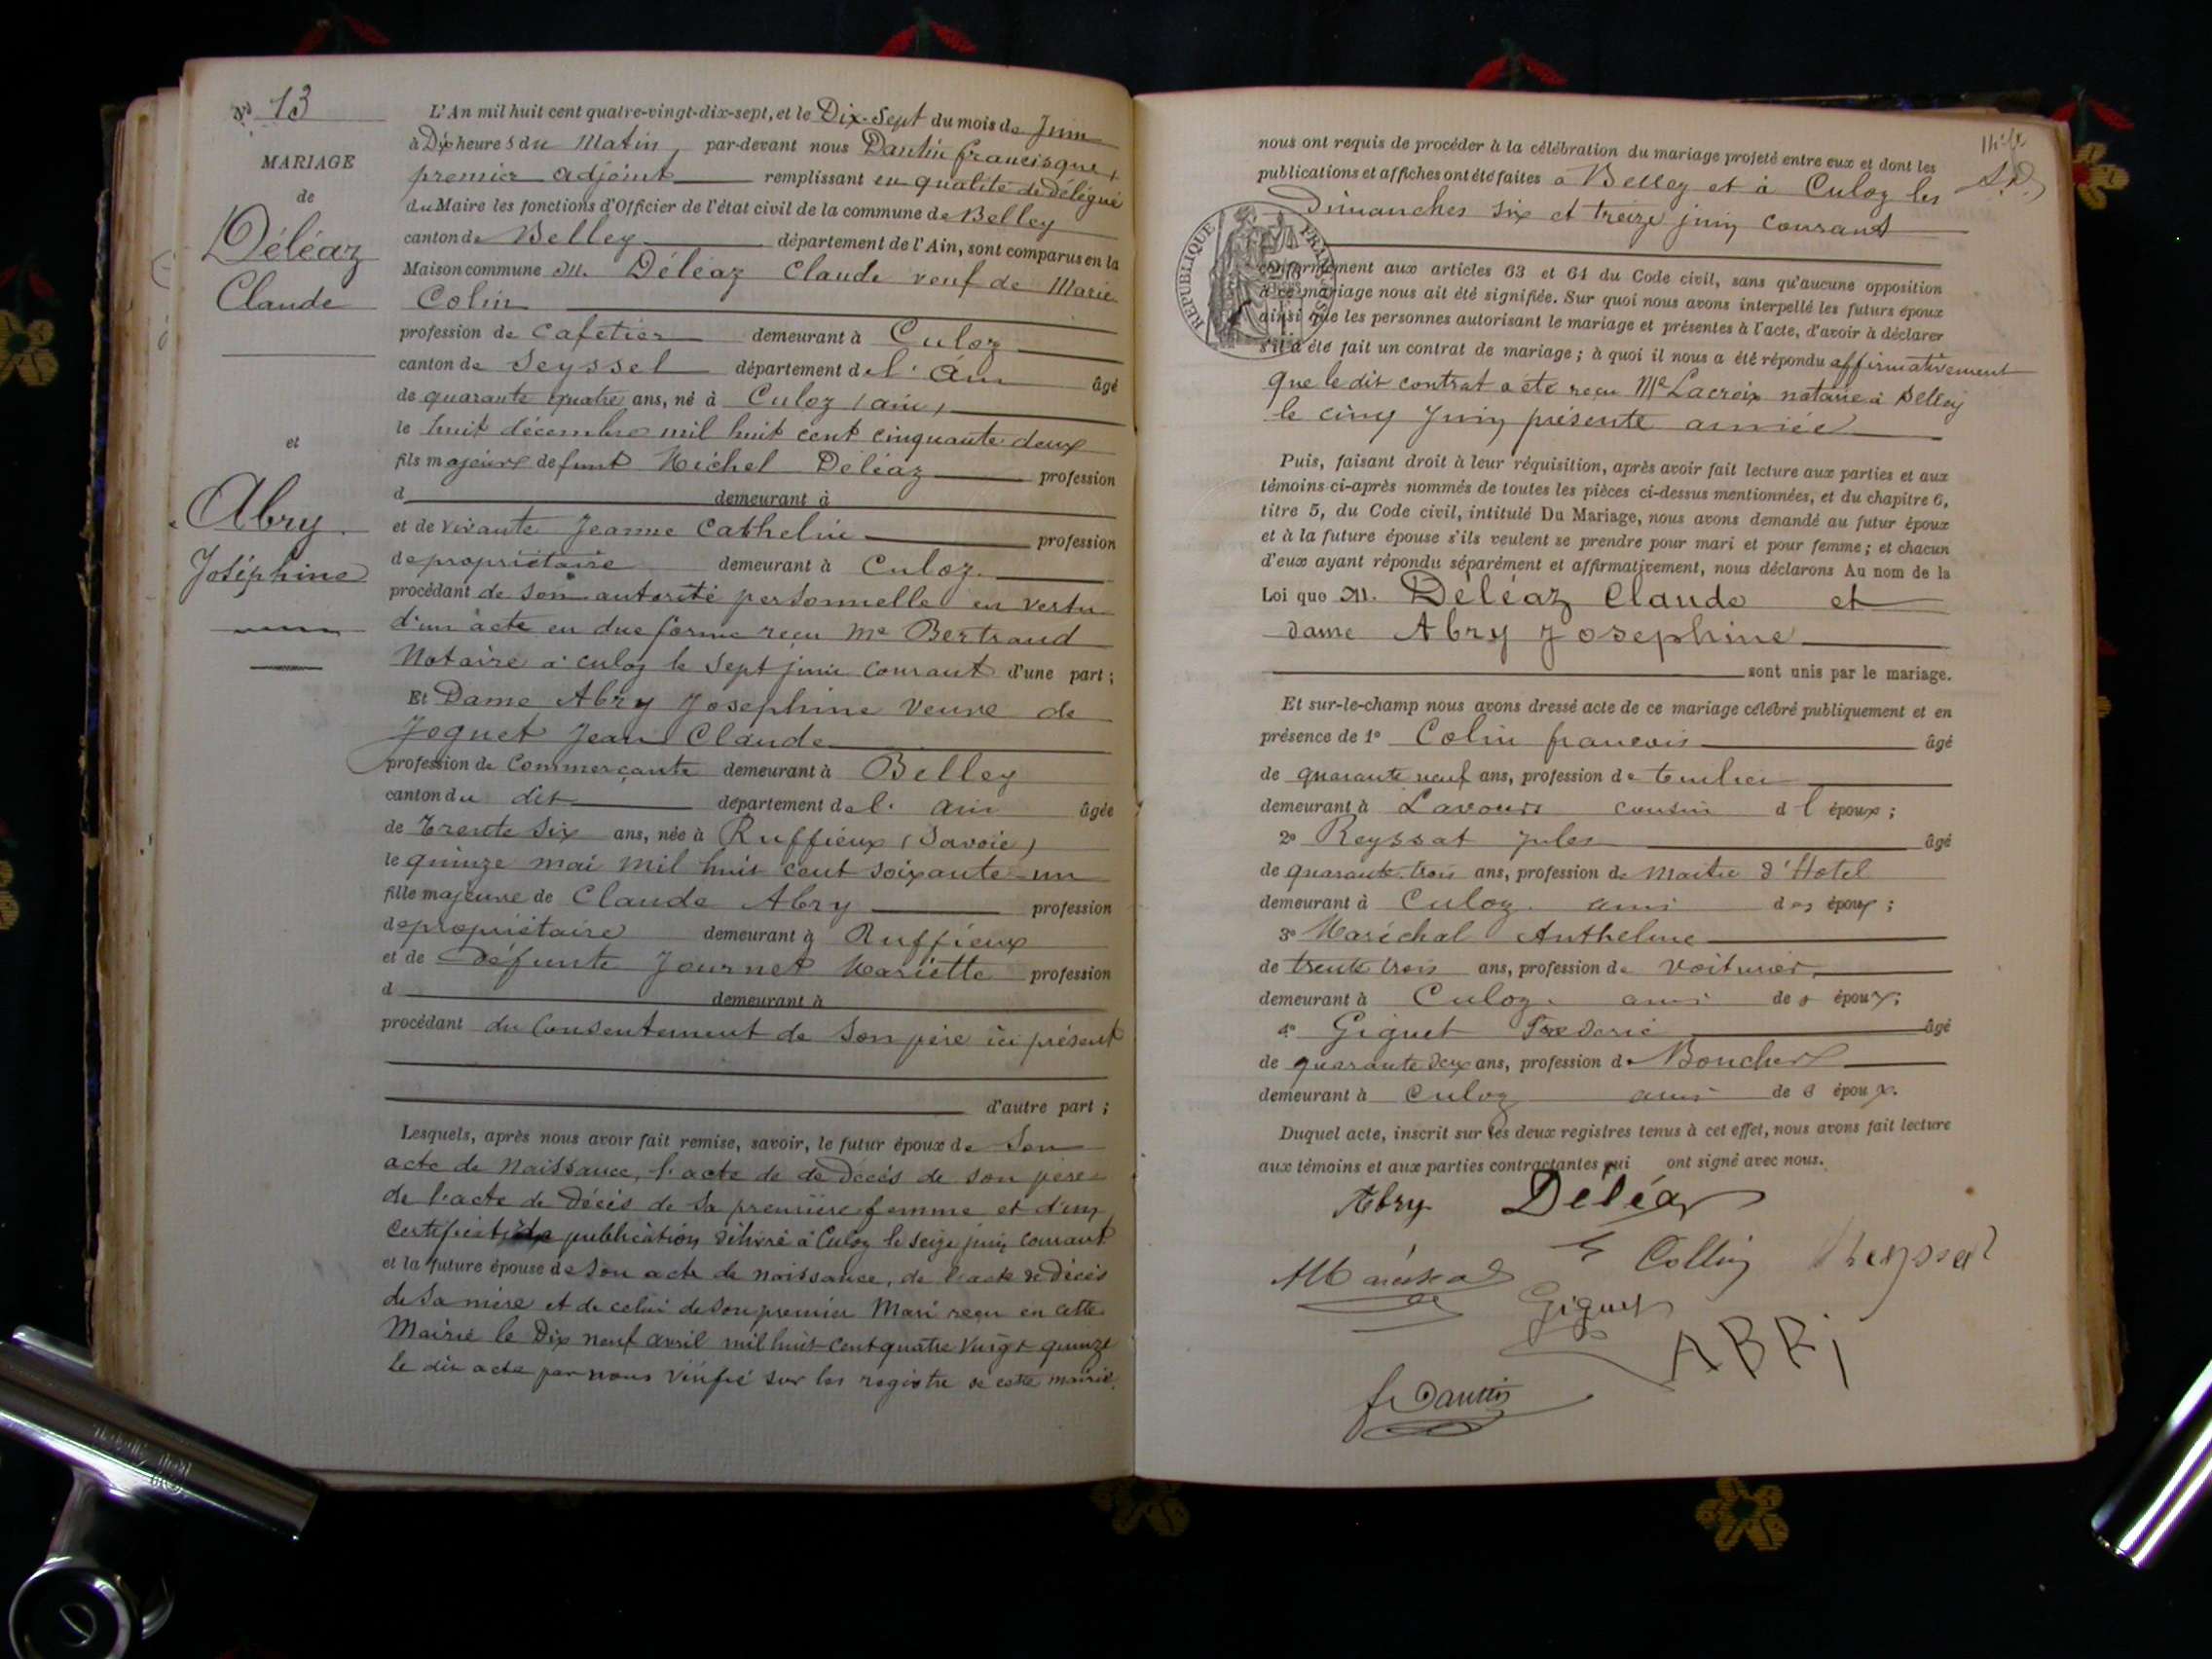 N° 13
MARIAGE
de
Déléaz
Claude
et
Abry
Joséphine
L'An mil huit cent quatre-vingt-dix-sept, et le Dix-Sept du mois de Juin
à Dix heures du Matin, par-devant nous Dantin francisque,
premier adjoint remplissant en qualité de délégué
du Maire les fonctions d'Officier de l'état civil de la commune de Belley
canton de Belley département de l'Ain, sont comparus en la
Maison commune M. Déléaz Claude veuf de Marie
Colin
profession de Cafetier demeurant à Culoz
canton de Seyssel département de l'Ain âgé
de quarante quatre ans, né à Culoz (ain)
le huit décembre mil huit cent cinquante deux
fils majeur de funt Michel Déléaz profession
d demeurant à
et de vivante Jeanne Cathelin profession
de propriétaire demeurant à Culoz
procédant de son autorité personnelle en vertu
d'un acte en due forme reçu Me Bertraud
Notaire à culoz le sept juin courant d'une part ;
Et Dame Abry Josephine Veuve de
Joguet Jean Claude
profession de Commerçante demeurant à Belley
canton du dit département de l'ain âgée
de Trente Six ans, née à Ruffieux (Savoie)
le quinze mai mil huit cent soixante-un
fille majeure de Claude Abry profession
de propriétaire demeurant à Ruffieux
et de défunte Journet Mariette profession
d demeurant à
procédant du Consentement de Son père ici présent
d'autre part ;
Lesquels, après nous avoir fait remise, savoir, le futur époux de Son
acte de Naissance, l'acte de de décès de son père
de l'acte de décès de sa première femme et d'un
certificat de publication délivré à Culoz le seize juin courant
et la future épouse de son acte de naissance, de l'acte de décès
de Sa mère et de celui de son premier Mari reçu en cette
Mairie le Dix neuf avril mil huit-cent quatre vingt quinze
le dit acte par nous vérifié sur les registre de cette mairie.
nous ont requis de procéder à la célébration du mariage projeté entre eux et dont les
publications et affiches ont été faites à Belley et à Culoz les
Dimanches six et treize juin courant
RÉPUBLIQUE FRANÇAISE
conformément aux articles 63 et 64 du Code civil, sans qu'aucune opposition
à ce mariage nous ait été signifiée. Sur quoi nous avons interpellé les futurs époux
ainsi que les personnes autorisant le mariage et présentes à l'acte, d'avoir à déclarer
s'il a été fait un contrat de mariage ; à quoi il nous a été répondu affirmativement
que le dit contrat a été reçu Me Lacroix notaire à Belley
le cinq Juin présente année
Puis, faisant droit à leur réquisition, après avoir fait lecture aux parties et aux
témoins ci-après nommés de toutes les pièces ci-dessus mentionnées, et du chapitre 6,
titre 5, du Code civil, intitulé Du Mariage, nous avons demandé au futur époux
et à la future épouse s'ils veulent se prendre pour mari et pour femme ; et chacun
d'eux ayant répondu séparément et affirmativement, nous déclarons Au nom de la
Loi que M. Déléaz Claude et
dame Abry Josephine
sont unis par le mariage.
Et sur-le-champ nous avons dressé acte de ce mariage célébré publiquement et en
présence de 1° Colin francois âgé
de quarante neuf ans, profession de tuilier
demeurant à Lavours cousin d l époux ;
2° Reyssat Jules âgé
de quarante-trois ans, profession de maitre d'Hotel
demeurant à Culoz ami des époux ;
3° Maréchal Anthelme
de trente trois ans, profession de voiturier
demeurant à Culoz ami des époux ;
4° Giguet Frederic âgé
de quarante deux ans, profession de Boucher
demeurant à Culoz ami des époux.
Duquel acte, inscrit sur les deux registres tenus à cet effet, nous avons fait lecture
aux témoins et aux parties contractantes qui ont signé avec nous.
Abry Déléaz
Maréchal Collin Reyssat
Giguet
ABRi
f Dantin